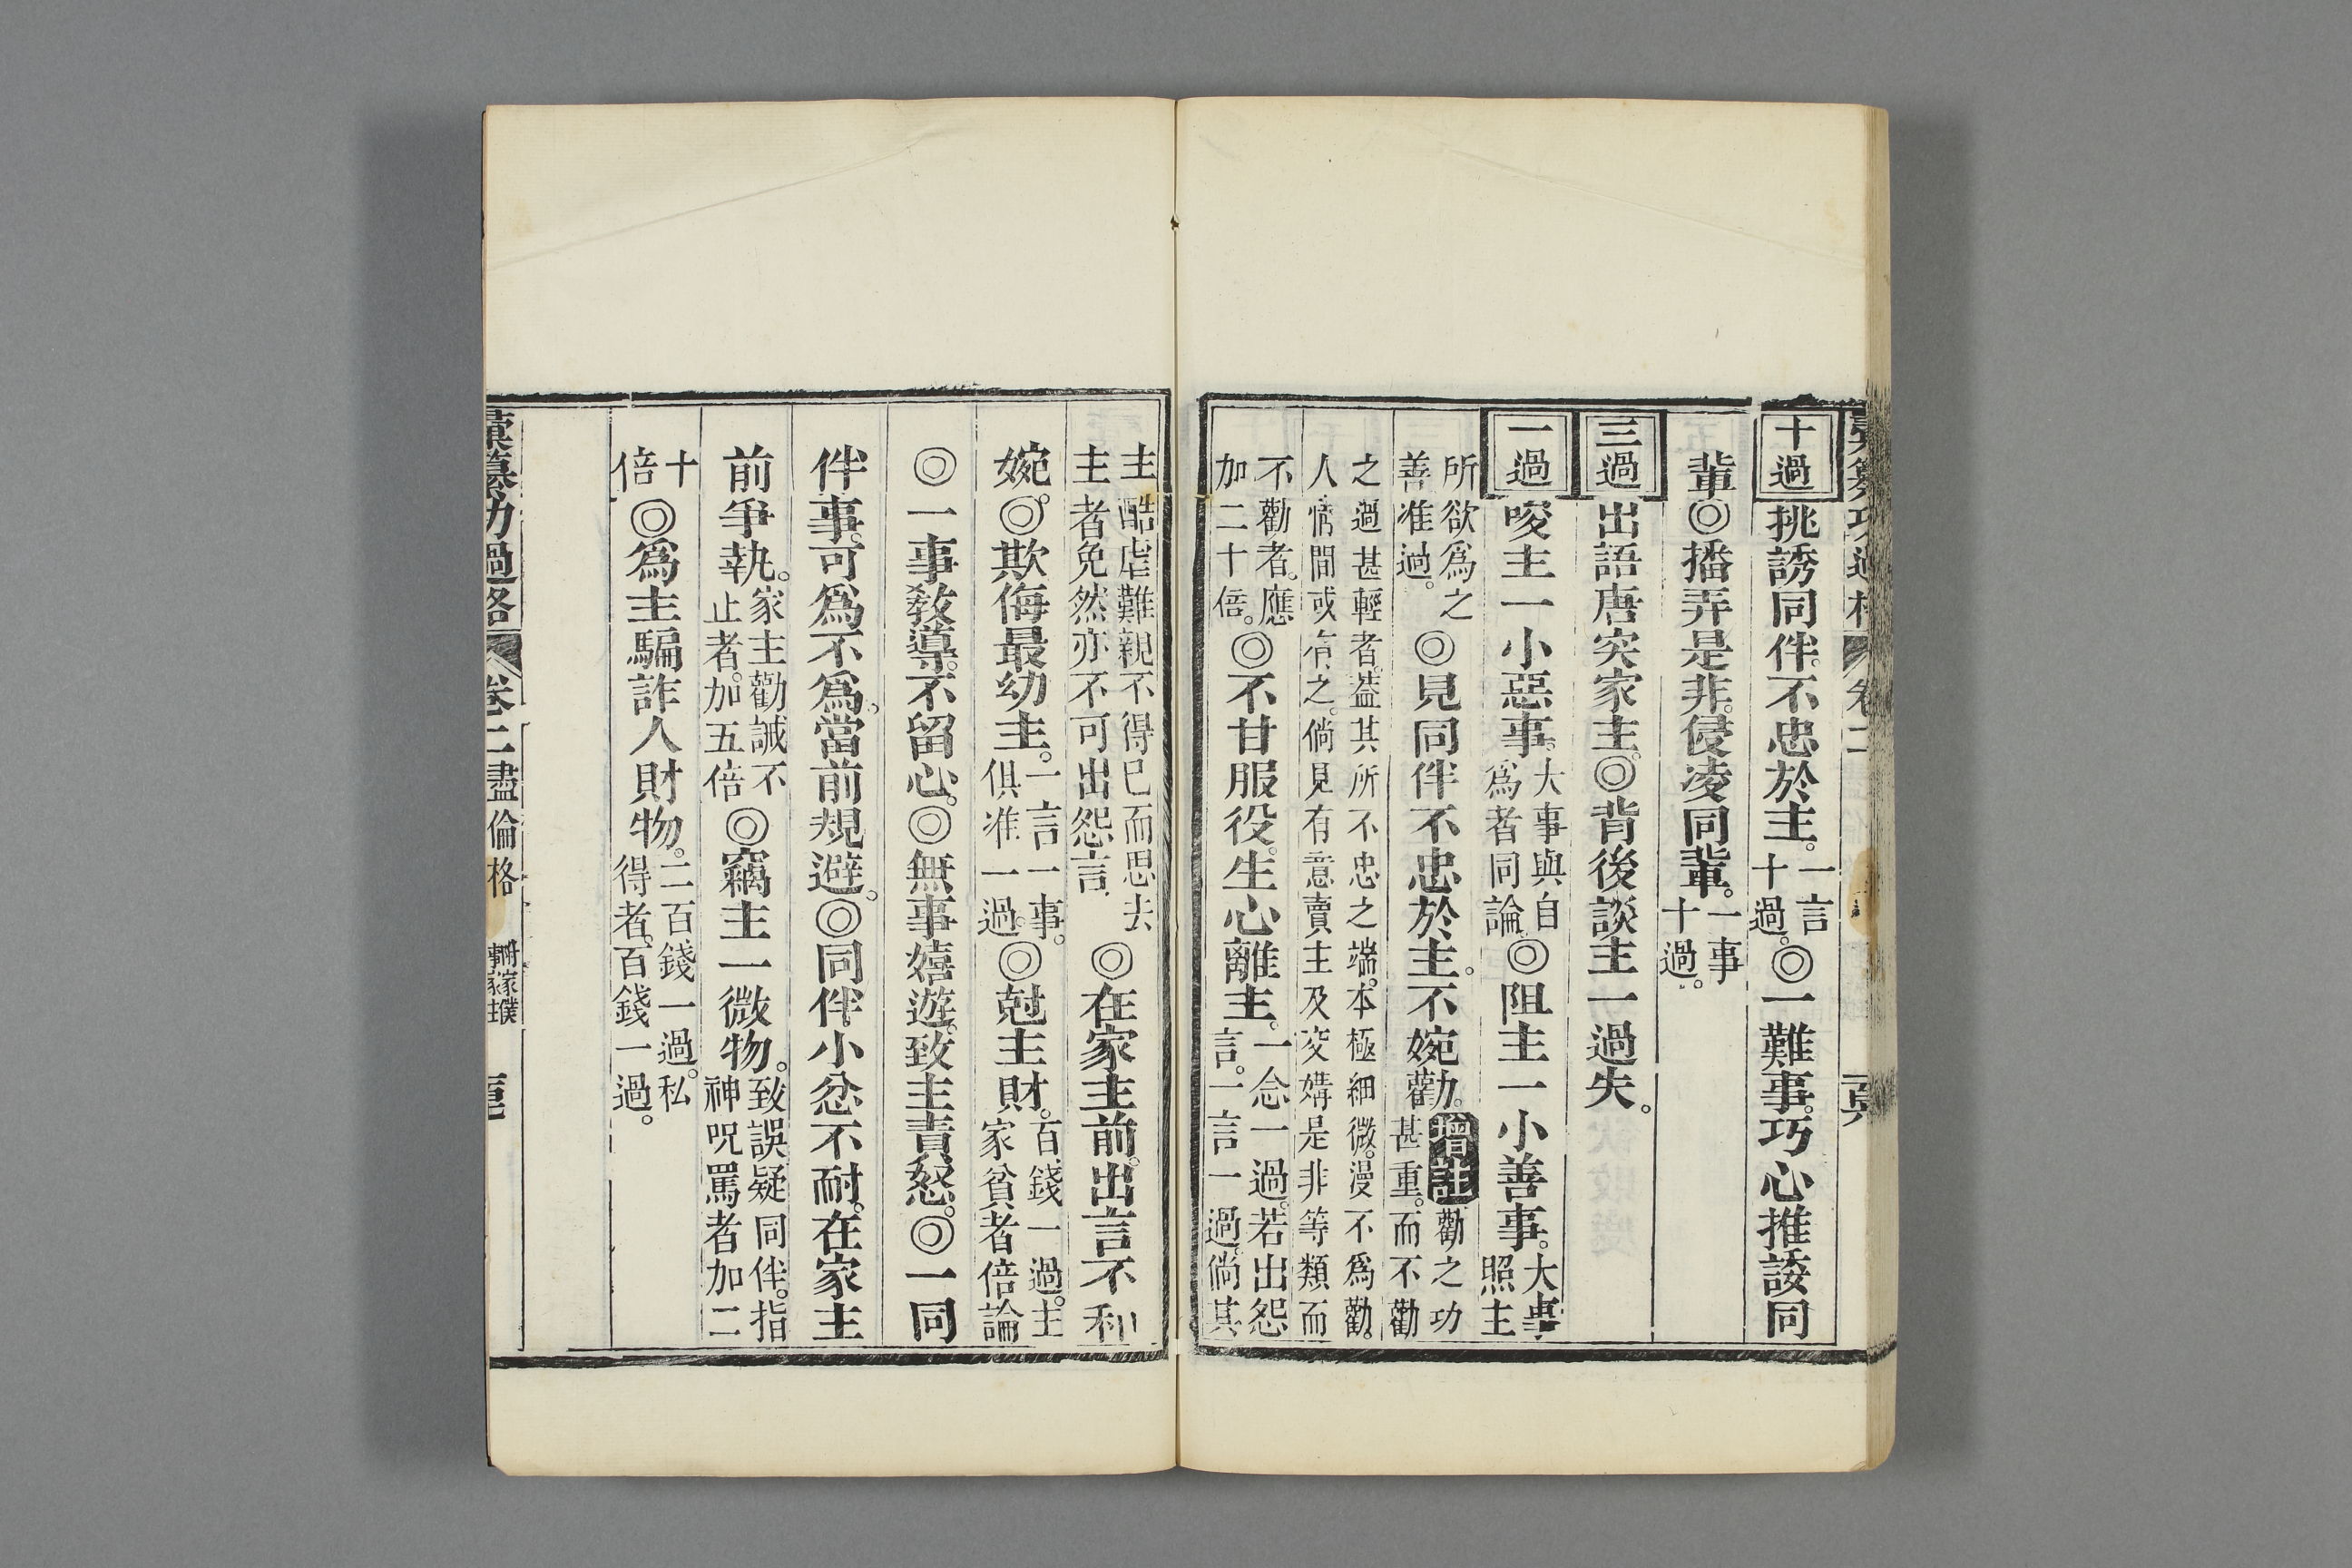 彙纂功過格 卷二
十過 挑誘同伴。不忠於主。一言十過。◎一難事。巧心推諉同
輩◎播弄是非。侵凌同輩。一事十過。
三過 出語唐突家主。◎背後談主一過失。
一過 唆主一小惡事。大事與自爲者同論。◎阻主一小善事。大事照主
所欲爲之善准過。◎見同伴不忠於主。不婉勸。增註勸之功甚重。而不勸
之過甚輕者。葢其所不忠之端。本極細微。漫不爲勸。
人情間或有之。倘見有意賣主及交媾是非等類而
不勸者。應加二十倍。◎不甘服役。生心離主。一念一過。若出怨言。一言一過。倘其
主酷虐難親不得已而思去主者免然亦不可出怨言◎在家主前。出言不利
婉。◎欺侮最幼主。一言一事。俱准一過。◎尅主財。百錢一過。主家貧者倍論
◎一事教導。不留心。◎無事嬉遊。致主責怒。◎一同
伴事。可爲不爲。當前規避。◎同伴小忿不耐。在家主
前爭執。家主勸誡不止者。加五倍◎竊主一微物。致誤疑同伴。指神呪罵者加二
十倍◎爲主騙詐人財物。二百錢一過。私得者。百錢一過。
彙纂功過格 卷二盡倫格